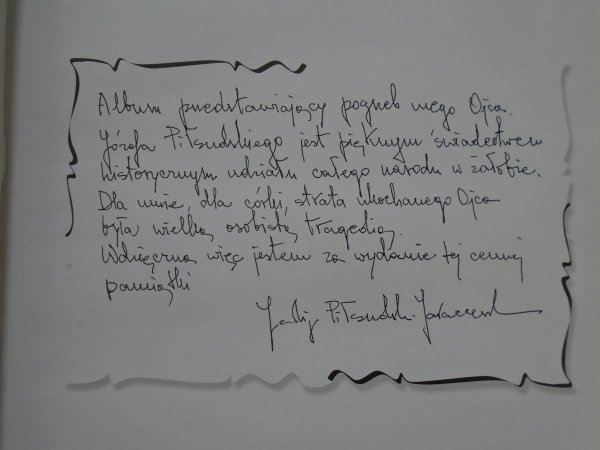 Album przedstawiający pogrzeb mego Ojca
Józefa Piłsudskiego jest pięknym świadectwem
historycznym udziału całego narodu w żałobie.
Dla mnie, dla córki, strata ukochanego Ojca
była wielką osobistą tragedią.
Wdzięczna więc jestem za wydanie tej cennej
pamiątki
Piłsudsk-Jaraczewsk